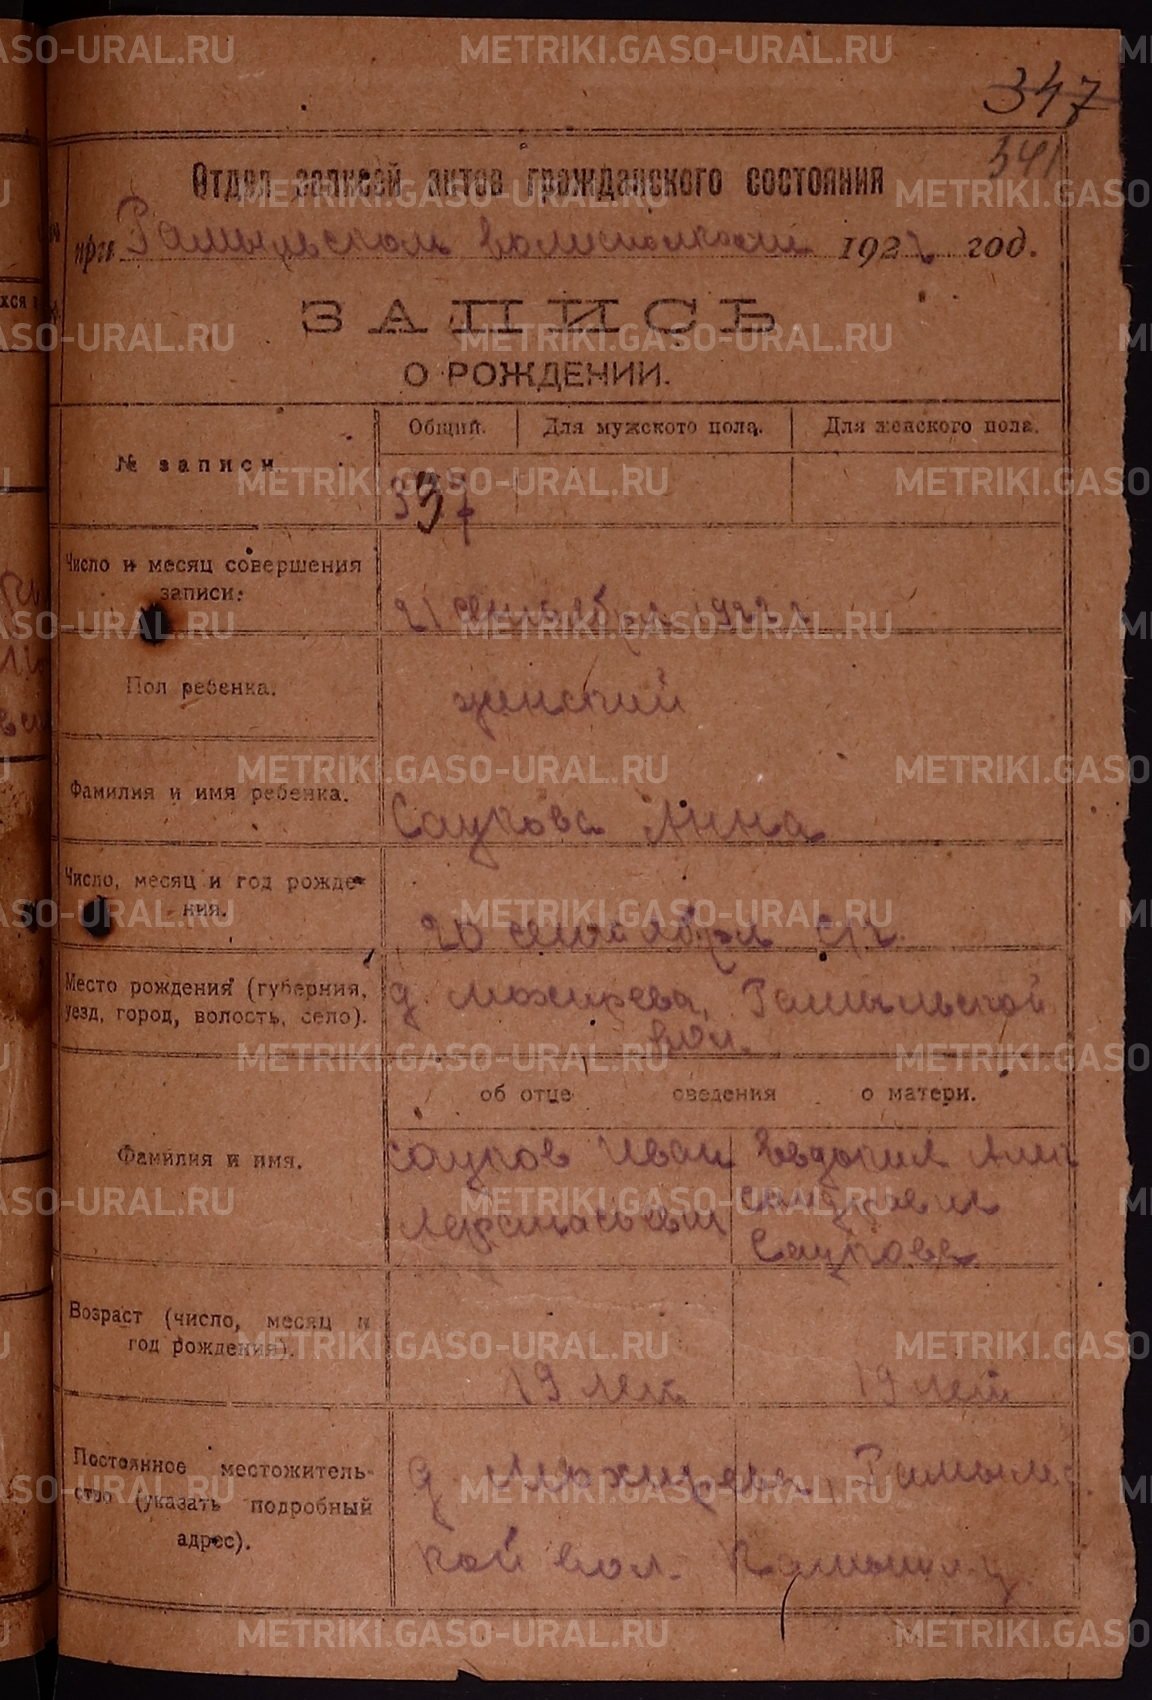 347
341
Отдел записей актов гражданского состояния
при волисполкоме 1922 год.
ЗАПИСЬ
О РОЖДЕНИИ.
№ записи.
Общий. Для мужского пола. Для женского пола.
337
Число и месяц совершения
записи:
21 сентября 1922 г
Пол ребенка.
женский
Фамилия и имя ребенка.
Саукова Анна
Число, месяц и год рожде-
ния.
20 сентября
Место рождения (губерния,
уезд, город, волость, село).
д. вол.
об отце сведения о матери.
Фамилия и имя.
Сауков Иван Евдокия
Саукова
Возраст (число, месяц и
год рождения).
19 лет 19 лет
Постоянное местожитель-
ство (указать подробный
адрес).
д.
кой вол.
METRIKI.GASO-URAL.RU